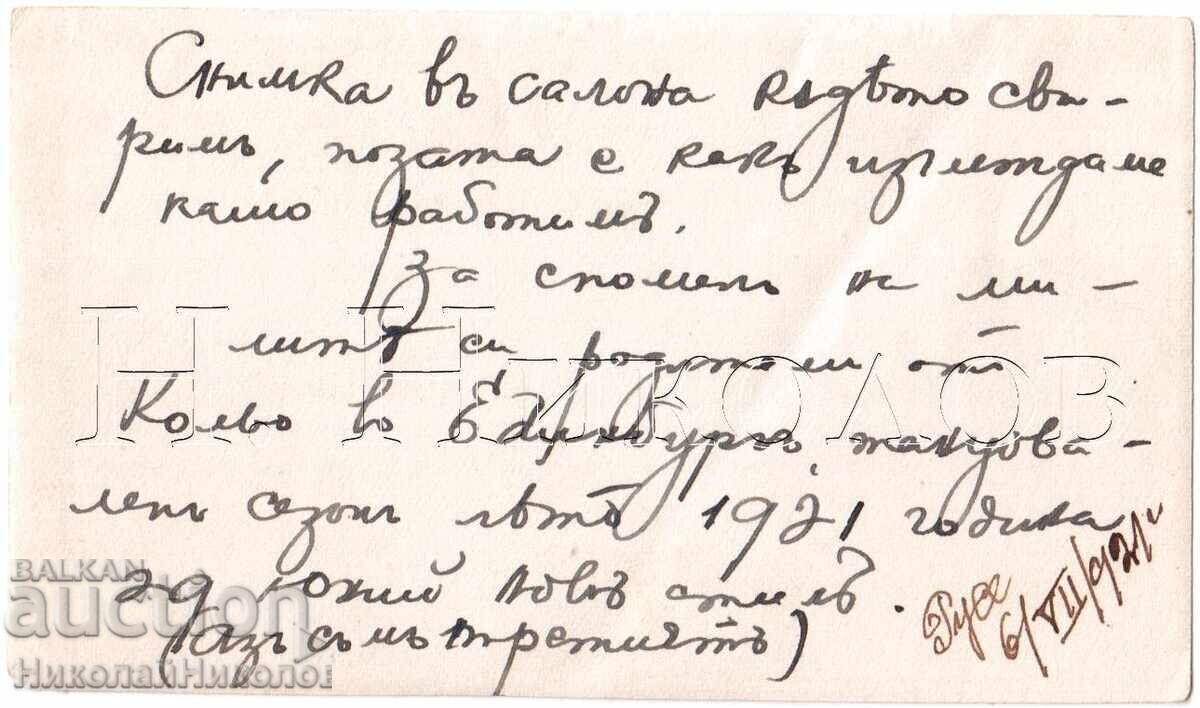 Снимка въ салона кѫдѣто сви-
римъ, позата е какъ изглеждаме
като работимъ.
За споменъ на ми-
литѣ си родители отъ
Кольо въ Единбургъ, танцова-
ленъ сезонъ лѣто 1921 година
29 юний новъ стилъ.
(Азъ съмъ третиятъ)
Русе
6/VII/921 г.
Н. Николов
BALKAN
auction
НиколайНиколов